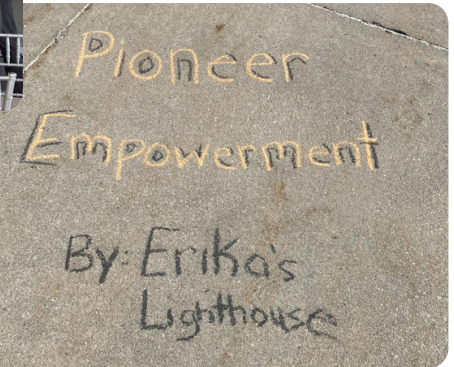 Pioneer
Empowerment
By: Erika's
Lighthouse